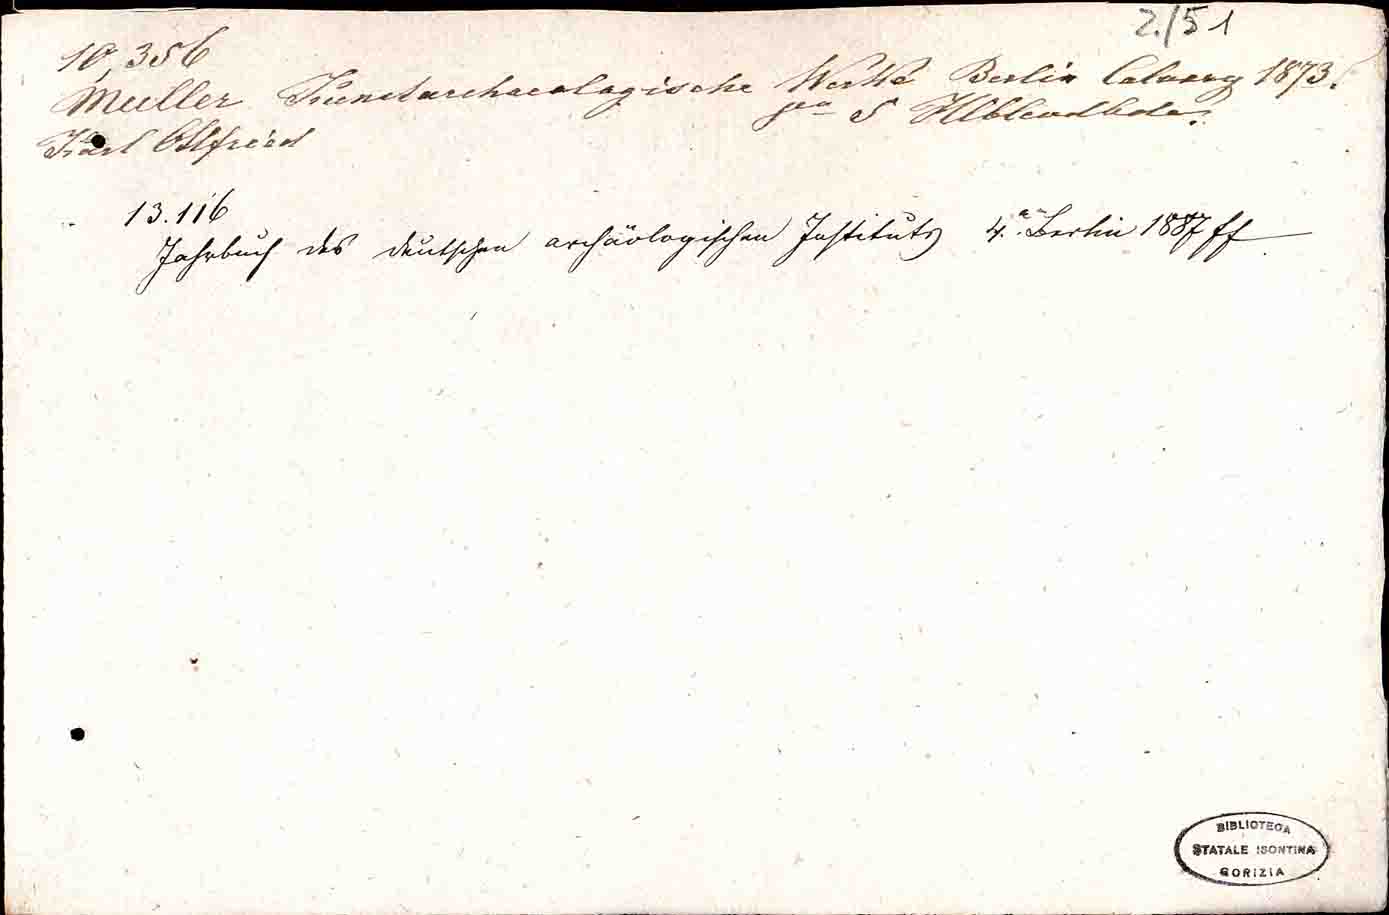 2./51
10,356
Müller Kunstarchaeologische Werke Berlin Calvary 1873.
Karl Otfried 8° 5 Hlblwdbde.
13.116
Jahrbuch des deutschen archäologischen Instituts 4.° Berlin 1887 ff
BIBLIOTECA
STATALE ISONTINA
GORIZIA